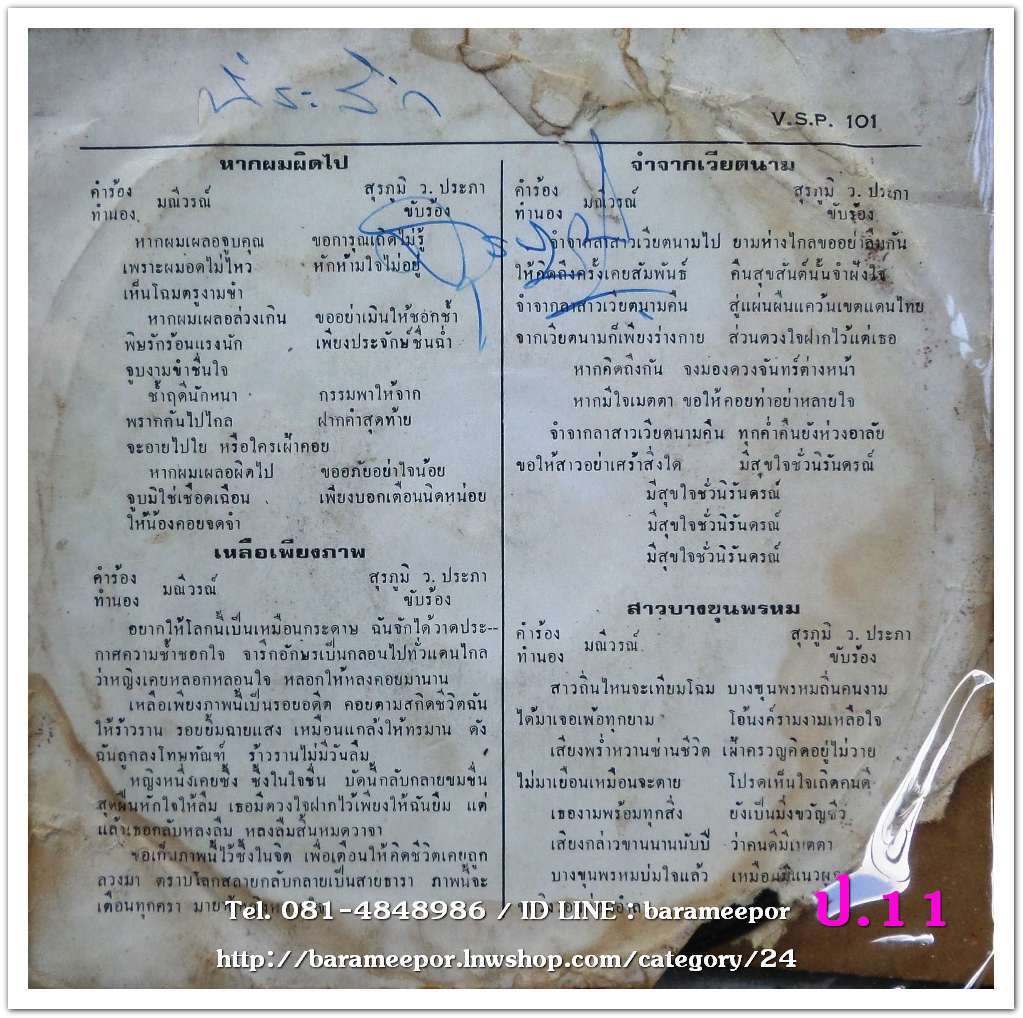 V.S.P. 101
หากผมผิดไป
คำร้อง
ทำนอง มณีวรณ์
สุรภูมิ ว. ประภา
ขับร้อง
หากผมเผลอจูบคุณ ขอการุณเถิดไม่รู้
เพราะผมอดไม่ไหว หักห้ามใจไม่อยู่
เห็นโฉมตรูงามขำ
หากผมเผลอล่วงเกิน ขออย่าเมินให้ชอกช้ำ
พิษรักร้อนแรงนัก เพียงประจักษ์ชื่นฉ่ำ
จูบงามขำชื่นใจ
ช้ำฤดีนักหนา กรรมพาให้จาก
พรากกันไปไกล ฝากคำสุดท้าย
จะอายไปใย หรือใครเฝ้าคอย
หากผมเผลอผิดไป ขออภัยอย่าใจน้อย
จูบมิใช่เชือดเฉือน เพียงบอกเตือนนิดหน่อย
ให้น้องคอยจดจำ
เหลือเพียงภาพ
คำร้อง
ทำนอง มณีวรณ์
สุรภูมิ ว. ประภา
ขับร้อง
อยากให้โลกนี้เป็นเหมือนกระดาษ ฉันจักได้วาดประ--
กาศความช้ำชอกใจ จาริกอักษรเป็นกลอนไปทั่วแดนไกล
ว่าหญิงเคยหลอกหลอนใจ หลอกให้หลงคอยมานาน
เหลือเพียงภาพนี้เป็นรอยอดีต คอยตามสกิดชีวิตฉัน
ให้ร้าวราน รอยยิ้มฉายแสง เหมือนแกล้งให้ทรมาน ดัง
ฉันถูกลงโทษทัณฑ์ ร้าวรานไม่มีวันลืม
หญิงหนึ่งเคยซึ้ง ซึ้งในใจชื่น บัดนี้กลับกลายขมขื่น
สุดฝืนหักใจให้ลืม เธอมีดวงใจฝากไว้เพียงให้ฉันยืม แต่
แล้วเธอกลับหลงลืม หลงลืมสิ้นหมดวาจา
ขอเก็บภาพนี้ไว้ซึ้งในจิต เพื่อเตือนให้คิดชีวิตเคยถูก
ลวงมา ตราบโลกสลายกลับกลายเป็นสายธารา ภาพนี้จะ
เตือนทุกครา
จำจากเวียตนาม
คำร้อง
ทำนอง มณีวรณ์
สุรภูมิ ว. ประภา
ขับร้อง
จำจากลาสาวเวียตนามไป ยามห่างไกลขออย่าลืมกัน
ให้คิดถึงครั้งเคยสัมพันธ์ คืนสุขสันต์นั้นจำฝังใจ
จำจากลาสาวเวียตนามคืน สู่แผ่นผืนแคว้นเขตแดนไทย
จากเวียตนามก็เพียงร่างกาย ส่วนดวงใจฝากไว้แต่เธอ
หากคิดถึงกัน จงมองดวงจันทร์ต่างหน้า
หากมีใจเมตตา ขอให้คอยท่าอย่าหลายใจ
จำจากลาสาวเวียตนามคืน ทุกค่ำคืนยังห่วงอาลัย
ขอให้สาวอย่าเศร้าสิ่งใด มีสุขใจชั่วนิรันดรณ์
มีสุขใจชั่วนิรันดรณ์
มีสุขใจชั่วนิรันดรณ์
มีสุขใจชั่วนิรันดรณ์
สาวบางขุนพรหม
คำร้อง
ทำนอง มณีวรณ์
สุรภูมิ ว. ประภา
ขับร้อง
สาวถิ่นไหนจะเทียมโฉม บางขุนพรหมถิ่นคนงาม
ได้มาเจอเพ้อทุกยาม โอ้นงค์รามงามเหลือใจ
เสียงพร่ำหวานซ่านชีวิต เฝ้าครวญคิดอยู่ไม่วาย
ไม่มาเยือนเหมือนจะตาย โปรดเห็นใจเถิดคนดี
เธองามพร้อมทุกสิ่ง ยังเป็นมิ่งขวัญชีวี
เสียงกล่าวขานนานนับปี ว่าคนดีมีเมตตา
บางขุนพรหมบ่มใจแล้ว เหมือนมีแนว
Tel. 081-4848986 / ID LINE : barameepor
ป.11
http://barameepor.lnwshop.com/category/24